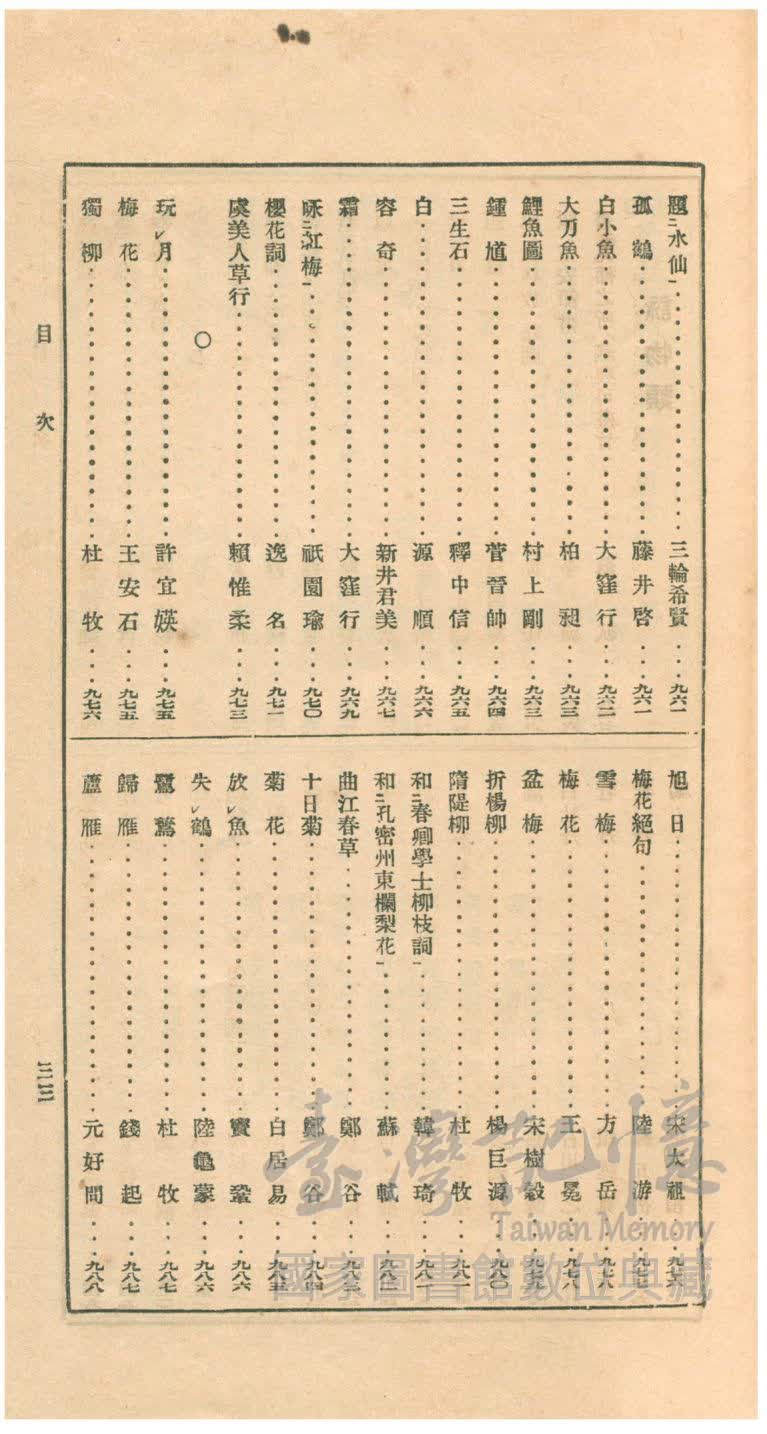 題ニ水仙一………三輪希賢…九六一
孤鶴………藤井啓…九六一
白小魚………大窪行…九六二
大刀魚………柏昶…九六三
鯉魚圖………村上剛…九六三
鍾馗………菅晉帥…九六四
三生石………釋中信…九六五
白………源順…九六六
容奇………新井君美…九六七
霜………大窪行…九六九
咏ニ紅梅一………祇園瑜…九七〇
櫻花詞………逸名…九七一
虞美人草行………賴惟柔…九七三
〇
玩レ月………許宜媖…九七五
梅花………王安石…九七五
獨柳………杜牧…九七六
旭日………宋太祖…九七六
梅花絕句………陸游…九七七
雪梅………方岳…九七八
梅花………王冕…九七八
盆梅………宋樹穀…九七九
折楊柳………楊巨源…九八〇
隋隄柳………杜牧…九八一
和ニ春卿學士柳枝詞一………韓琦…九八一
和ニ孔密州東欄梨花一………蘇軾…九八二
曲江春草………鄭谷…九八三
十日菊………鄭谷…九八四
菊花………白居易…九八五
放レ魚………竇鞏…九八六
失レ鶴………陸龜蒙…九八六
鷺鷥………杜牧…九八七
歸雁………錢起…九八七
蘆雁………元好問…九八八
目次
三三
臺灣記憶
Taiwan Memory
國家圖書館數位典藏